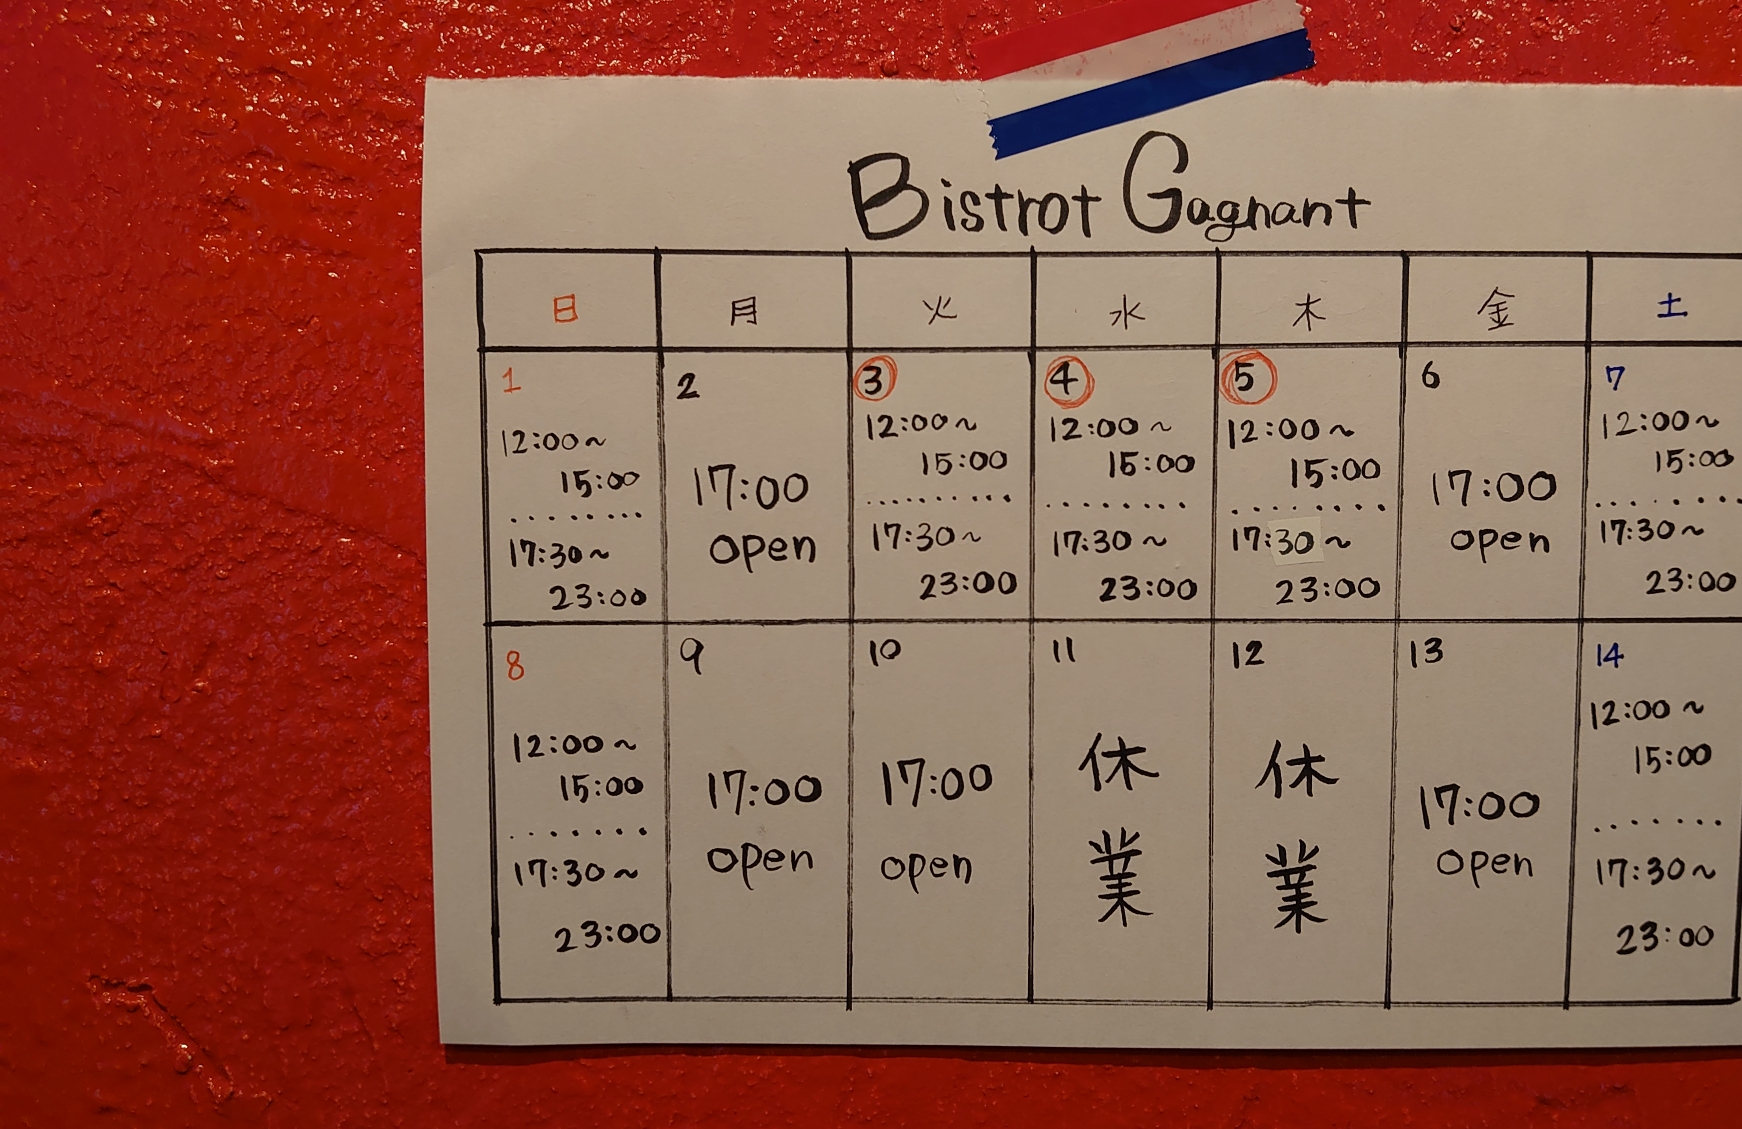 Bistrot Gagnant
日 月 火 水 木 金 土
1 2 3 4 5 6 7
12:00~
15:00
17:30~
23:00
17:00
open
12:00~
15:00
17:30~
23:00
12:00~
15:00
17:30~
23:00
12:00~
15:00
17:30~
23:00
17:00
open
12:00~
15:00
17:30~
23:00
8 9 10 11 12 13 14
12:00~
15:00
17:30~
23:00
17:00
open
17:00
open
休
業
休
業
17:00
open
12:00~
15:00
17:30~
23:00